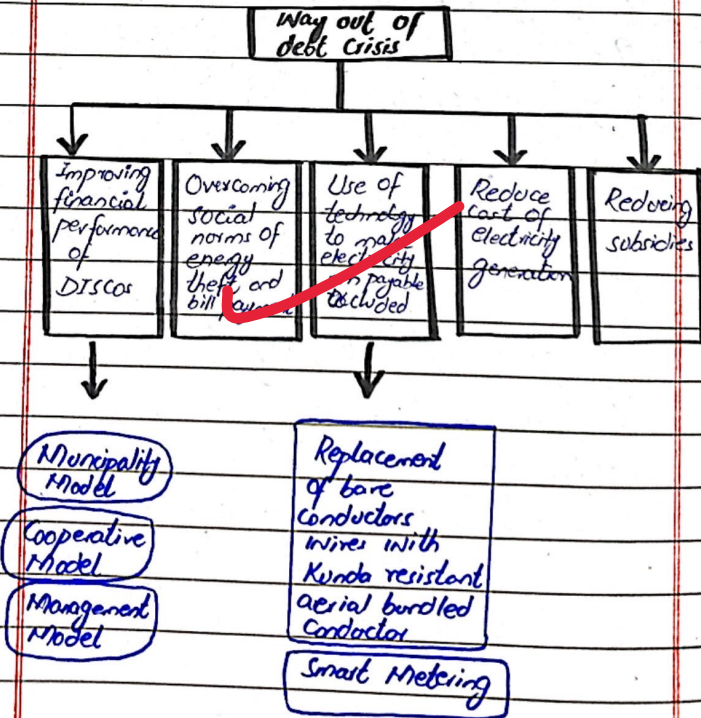 Way out of
debt Crisis
Improving
financial
performance
of
DISCOs
Overcoming
social
norms of
energy
theft and
bill payment
Use of
technology
to make
electricity
payable
Reduce
cost of
electricity
generation
Reducing
subsidies
Municipality
Model
Cooperative
Model
Management
Model
Replacement
of bare
conductors
wires with
Kunda resistant
aerial bundled
Conductor
Smart Metering